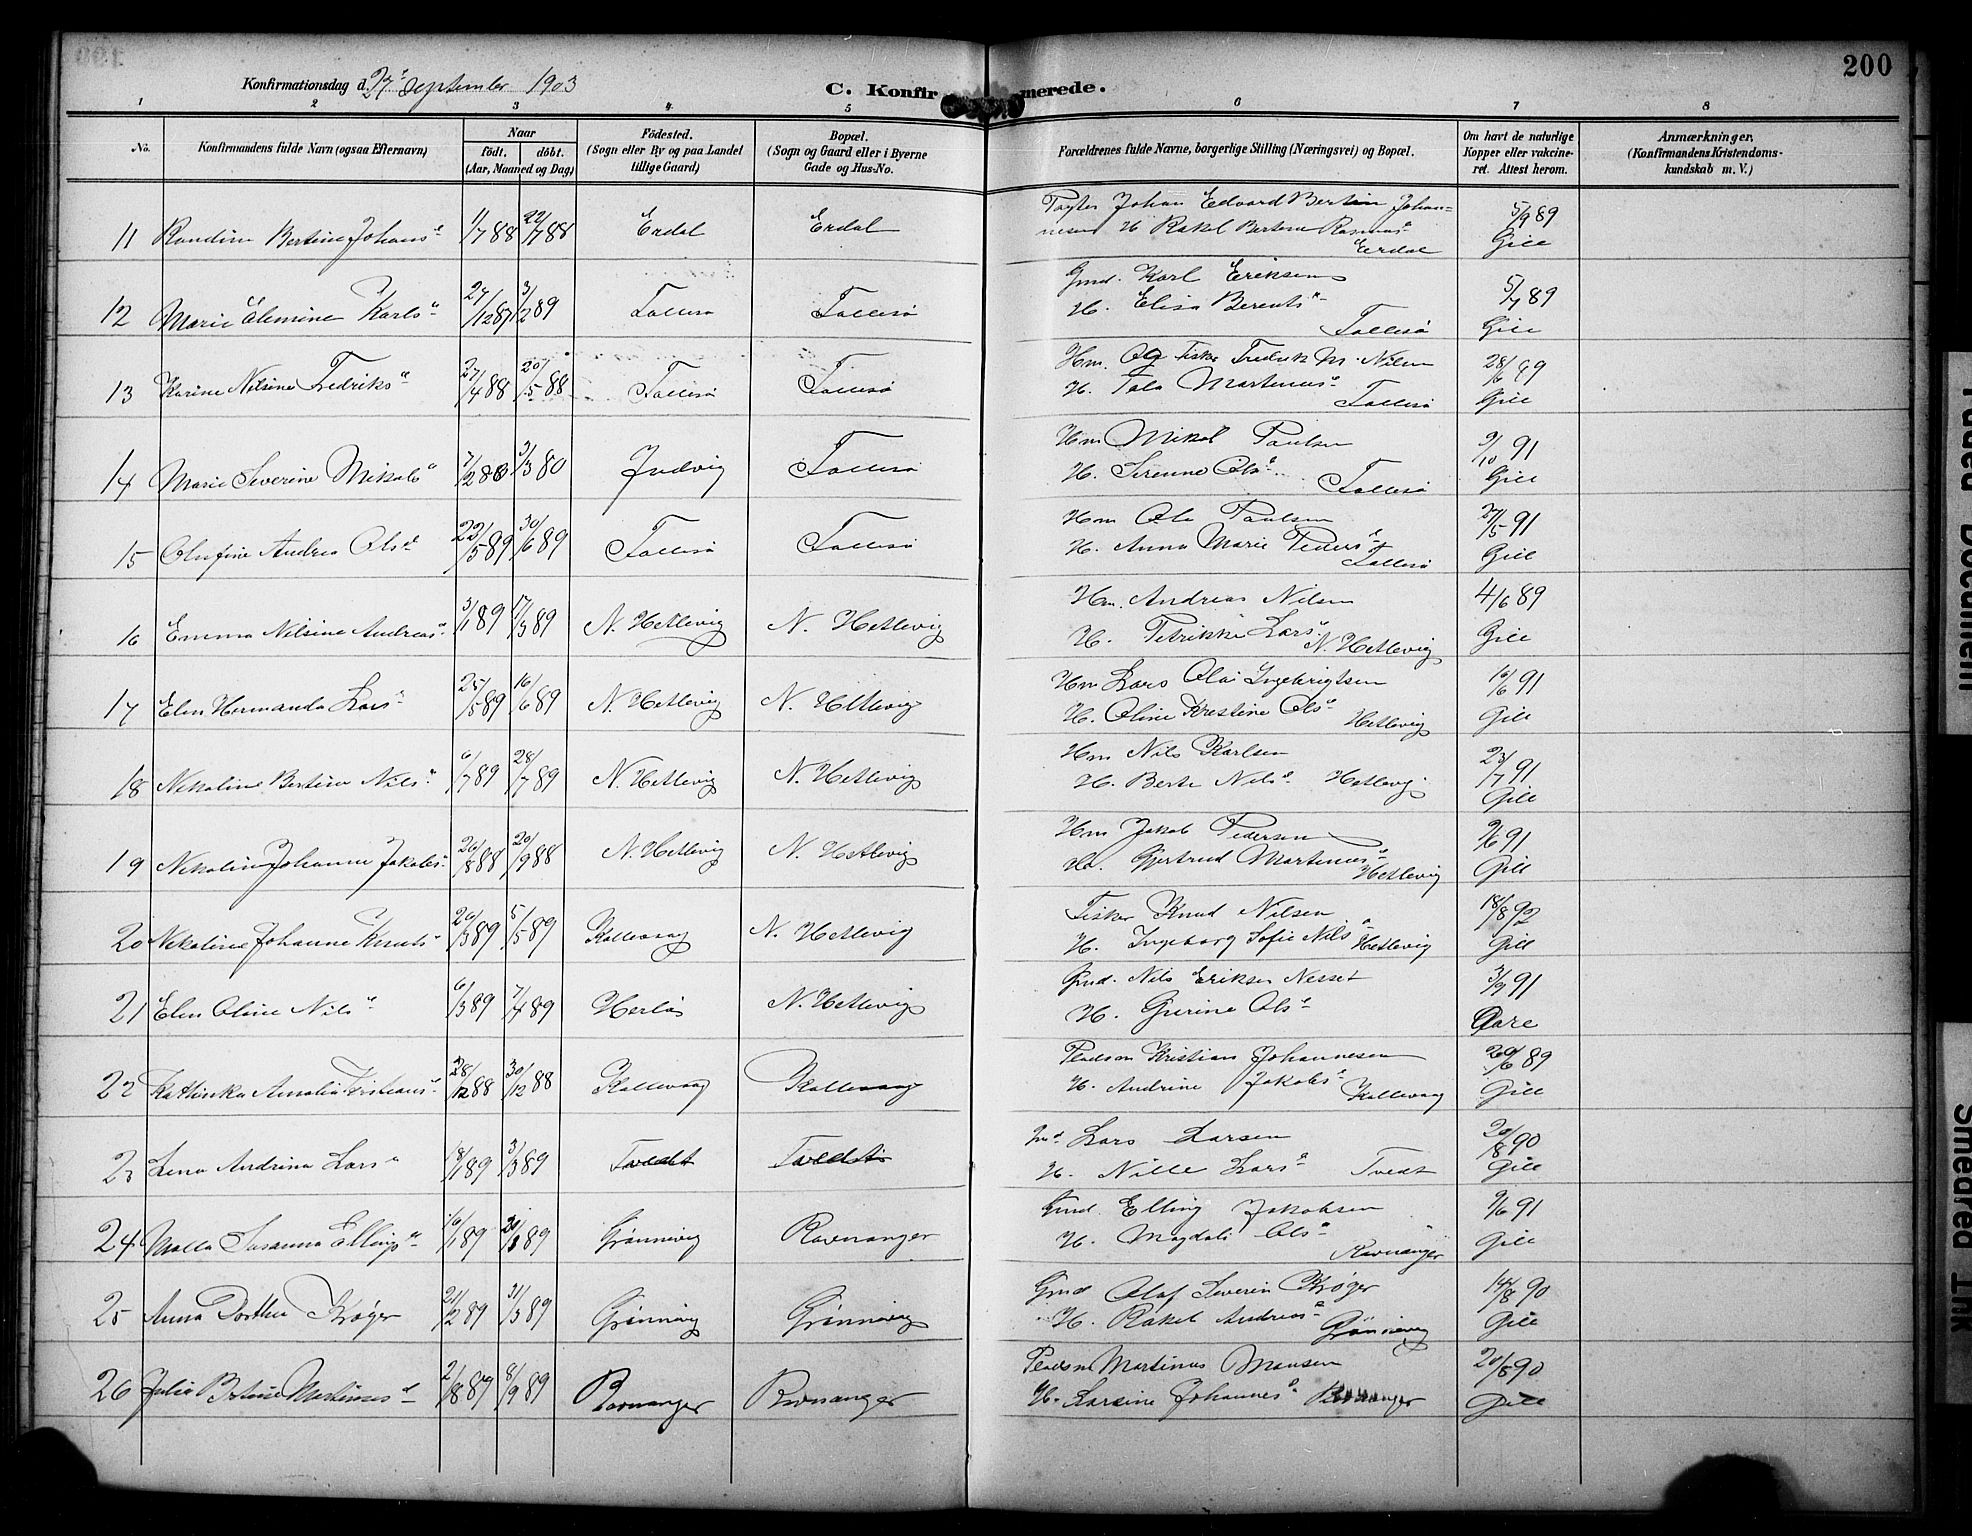 200
Konfirmationsdag d. 27' September 1903
C. Konfirmerede.
1 2 3 4 5 6 7 8
No.
Konfirmandens fulde Navn (ogsaa Efternavn)
Naar
født. døbt.
(Aar, Maaned og Dag)
Fødested.
(Sogn eller By og paa Landet
tillige Gaard)
Bopæl.
(Sogn og Gaard eller i Byerne
Gade og Hus-No.
Forældrenes fulde Navne, borgerlige Stilling (Næringsvei) og Bopæl.
Om havt de naturlige
Kopper eller vakcine-
ret. Attest herom.
Anmærkninger.
(Konfirmandens Kristendoms-
kundskab m. V.)
11 Randine Bertine Johans d 1/7 88 22/7 88 Erdal Erdal
Johan Edvard Bertin Johan=
nesen H Rakel Bertine Rasmus d
Erdal
5/9 89
Gill
12 Marie Elemine Karls d 27/12 87 3/2 89 Tollesø Tollesø
Gmd. Karl Eriksen
H. Elisa Berents d
Tollesø
5/7 89
Gill
13 Karine Nilsine Fredriks d 27/4 88 20/5 88 Tollesø Tollesø
Hm. og Fisker Fredrik M. Nilsen
H. Tala Martinus d
Tollesø
28/6 89
Gill
14 Marie Severine Mikals d Indvig Tollesø
Hm Mikal Paulsen
H. Serenne Ols d
Tollesø
9/10 91
Gill
15 Olufine Andrea Ols d 22/5 89 30/6 89 Tollesø Tollesø
Hm Ole Paulsen
H. Anna Marie Peders d
Tollesø
27/5 91
Gill
16 Emma Nilsine Andreas d 3/1 89 17/3 89 N. Hetlevig N. Hetlevig
Hm. Andreas Nilsen
H. Petrikke Lars d
N. Hetlevig
4/6 89
Gill
17 Elen Hermanda Lars d 25/5 89 16/6 89 N. Hetlevig N. Hetlevig
Hm Lars Olai Ingebrigtsen
H. Oline Kristine Ols d Hetlevig
10/6 91
Gill
18 Nikoline Bertine Nils d 6/7 89 28/7 89 N. Hetlevig N. Hetlevig
Hm Nils Karlsen
H. Berte Nils d Hetlevig
23/7 91
Gill
19 Nikoline Johanne Jakobs d 26/8 88 20/9 88 N. Hetlevig N. Hetlevig
Hm Jakob Pedersen
H. Gjertrud Martinus d
Hetlevig
9/6 91
Gill
20 Nikoline Johanne Knuts d 20/3 89 5/5 89 Kollevaag N. Hetlevig
Fisker Knud Nilsen
H. Ingeborg Sofie Nils d Hetlevig
18/8 92
Gill
21 Elen Oline Nils d 6/3 89 7/4 89 Herlø N. Hetlevig
Gmd. Nils Eriksen Nesset
H. Gurine Ols d
3/9 91
22 Kathinka Amalia Kristians d 28/12 88 30/12 88 Kollevaag Kollevaag
Pladsm Kristian Johannesen
H. Andrine Jakobs d
Kollevaag
20/6 89
Gill
23 Lena Andrina Lars d 18/1 89 3/3 89 Tvedt Tvedt
Lars Larsen
H. Nille Lars d Tvedt
20/8 90
Gill
24 Malla Susanna Ellings d 16/1 89 Grønnevig Ravnanger
Gmd. Elling Jakobsen
H. Magdali Ols d
Ravnanger
9/6 91
Gill
25 Anna Dorthea Krøger 21/2 89 31/3 89 Grønnevig Grønnevig
Gmd Olaf Severin Krøger
H. Rakel Andreas d
Grønnevig
14/8 90
Gill
26 Julie Bertine Martinus d 2/8 89 8/9 89 Ravnanger Ravnanger
Pladsm Martinus Monsen
H. Larsine Johannes d Ravnanger
20/8 90
Gill
Faded Document
Smeared Ink